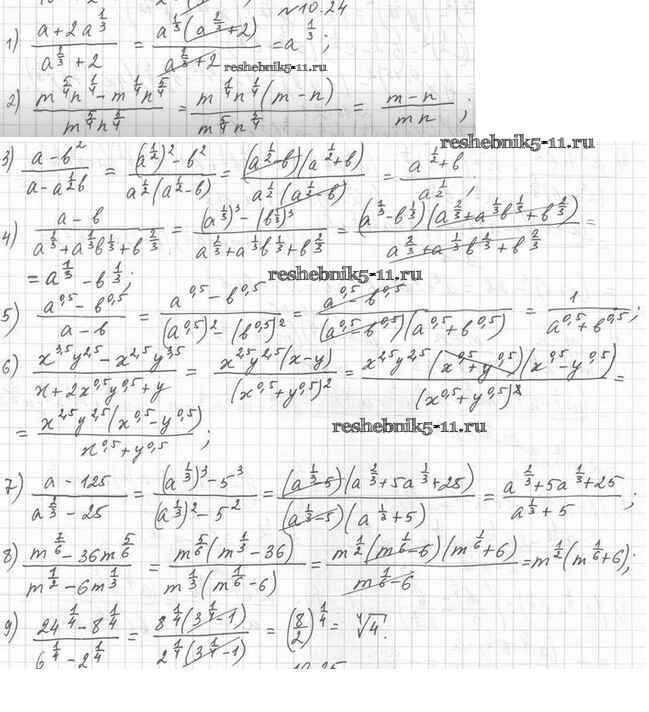 №10.24
1) (a+2a^{1/3})/(a^{2/3}+2) = (a^{1/3}(a^{2/3}+2))/(a^{2/3}+2) = a^{1/3};
reshebnik5-11.ru
2) (m^{5/4}n^{1/4}-m^{1/4}n^{5/4})/(m^{5/4}n^{5/4}) = (m^{1/4}n^{1/4}(m-n))/(m^{5/4}n^{5/4}) = (m-n)/(mn);
reshebnik5-11.ru
3) (a-b^2)/(a-a^{1/2}b) = ((a^{1/2})^2-b^2)/(a^{1/2}(a^{1/2}-b)) = ((a^{1/2}-b)(a^{1/2}+b))/(a^{1/2}(a^{1/2}-b)) = (a^{1/2}+b)/(a^{1/2});
4) (a-b)/(a^{2/3}+a^{1/3}b^{1/3}+b^{2/3}) = ((a^{1/3})^3-(b^{1/3})^3)/(a^{2/3}+a^{1/3}b^{1/3}+b^{2/3}) = ((a^{1/3}-b^{1/3})(a^{2/3}+a^{1/3}b^{1/3}+b^{2/3}))/(a^{2/3}+a^{1/3}b^{1/3}+b^{2/3}) =
= a^{1/3}-b^{1/3};
reshebnik5-11.ru
5) (a^{0,5}-b^{0,5})/(a-b) = (a^{0,5}-b^{0,5})/((a^{0,5})^2-(b^{0,5})^2) = (a^{0,5}-b^{0,5})/((a^{0,5}-b^{0,5})(a^{0,5}+b^{0,5})) = 1/(a^{0,5}+b^{0,5});
6) (x^{3,5}y^{2,5}-x^{2,5}y^{3,5})/(x+2x^{0,5}y^{0,5}+y) = (x^{2,5}y^{2,5}(x-y))/((x^{0,5}+y^{0,5})^2) = (x^{2,5}y^{2,5}(x^{0,5}+y^{0,5})(x^{0,5}-y^{0,5}))/((x^{0,5}+y^{0,5})^2) =
= (x^{2,5}y^{2,5}(x^{0,5}-y^{0,5}))/(x^{0,5}+y^{0,5});
reshebnik5-11.ru
7) (a-125)/(a^{2/3}-25) = ((a^{1/3})^3-5^3)/((a^{1/3})^2-5^2) = ((a^{1/3}-5)(a^{2/3}+5a^{1/3}+25))/((a^{1/3}-5)(a^{1/3}+5)) = (a^{2/3}+5a^{1/3}+25)/(a^{1/3}+5);
8) (m^{7/6}-36m^{5/6})/(m^{1/2}-6m^{1/3}) = (m^{5/6}(m^{1/3}-36))/(m^{1/3}(m^{1/6}-6)) = (m^{1/2}(m^{1/6}-6)(m^{1/6}+6))/(m^{1/6}-6) = m^{1/2}(m^{1/6}+6);
9) (24^{1/4}-8^{1/4})/(6^{1/4}-2^{1/4}) = (8^{1/4}(3^{1/4}-1))/(2^{1/4}(3^{1/4}-1)) = (8/2)^{1/4} = ⁴√4.